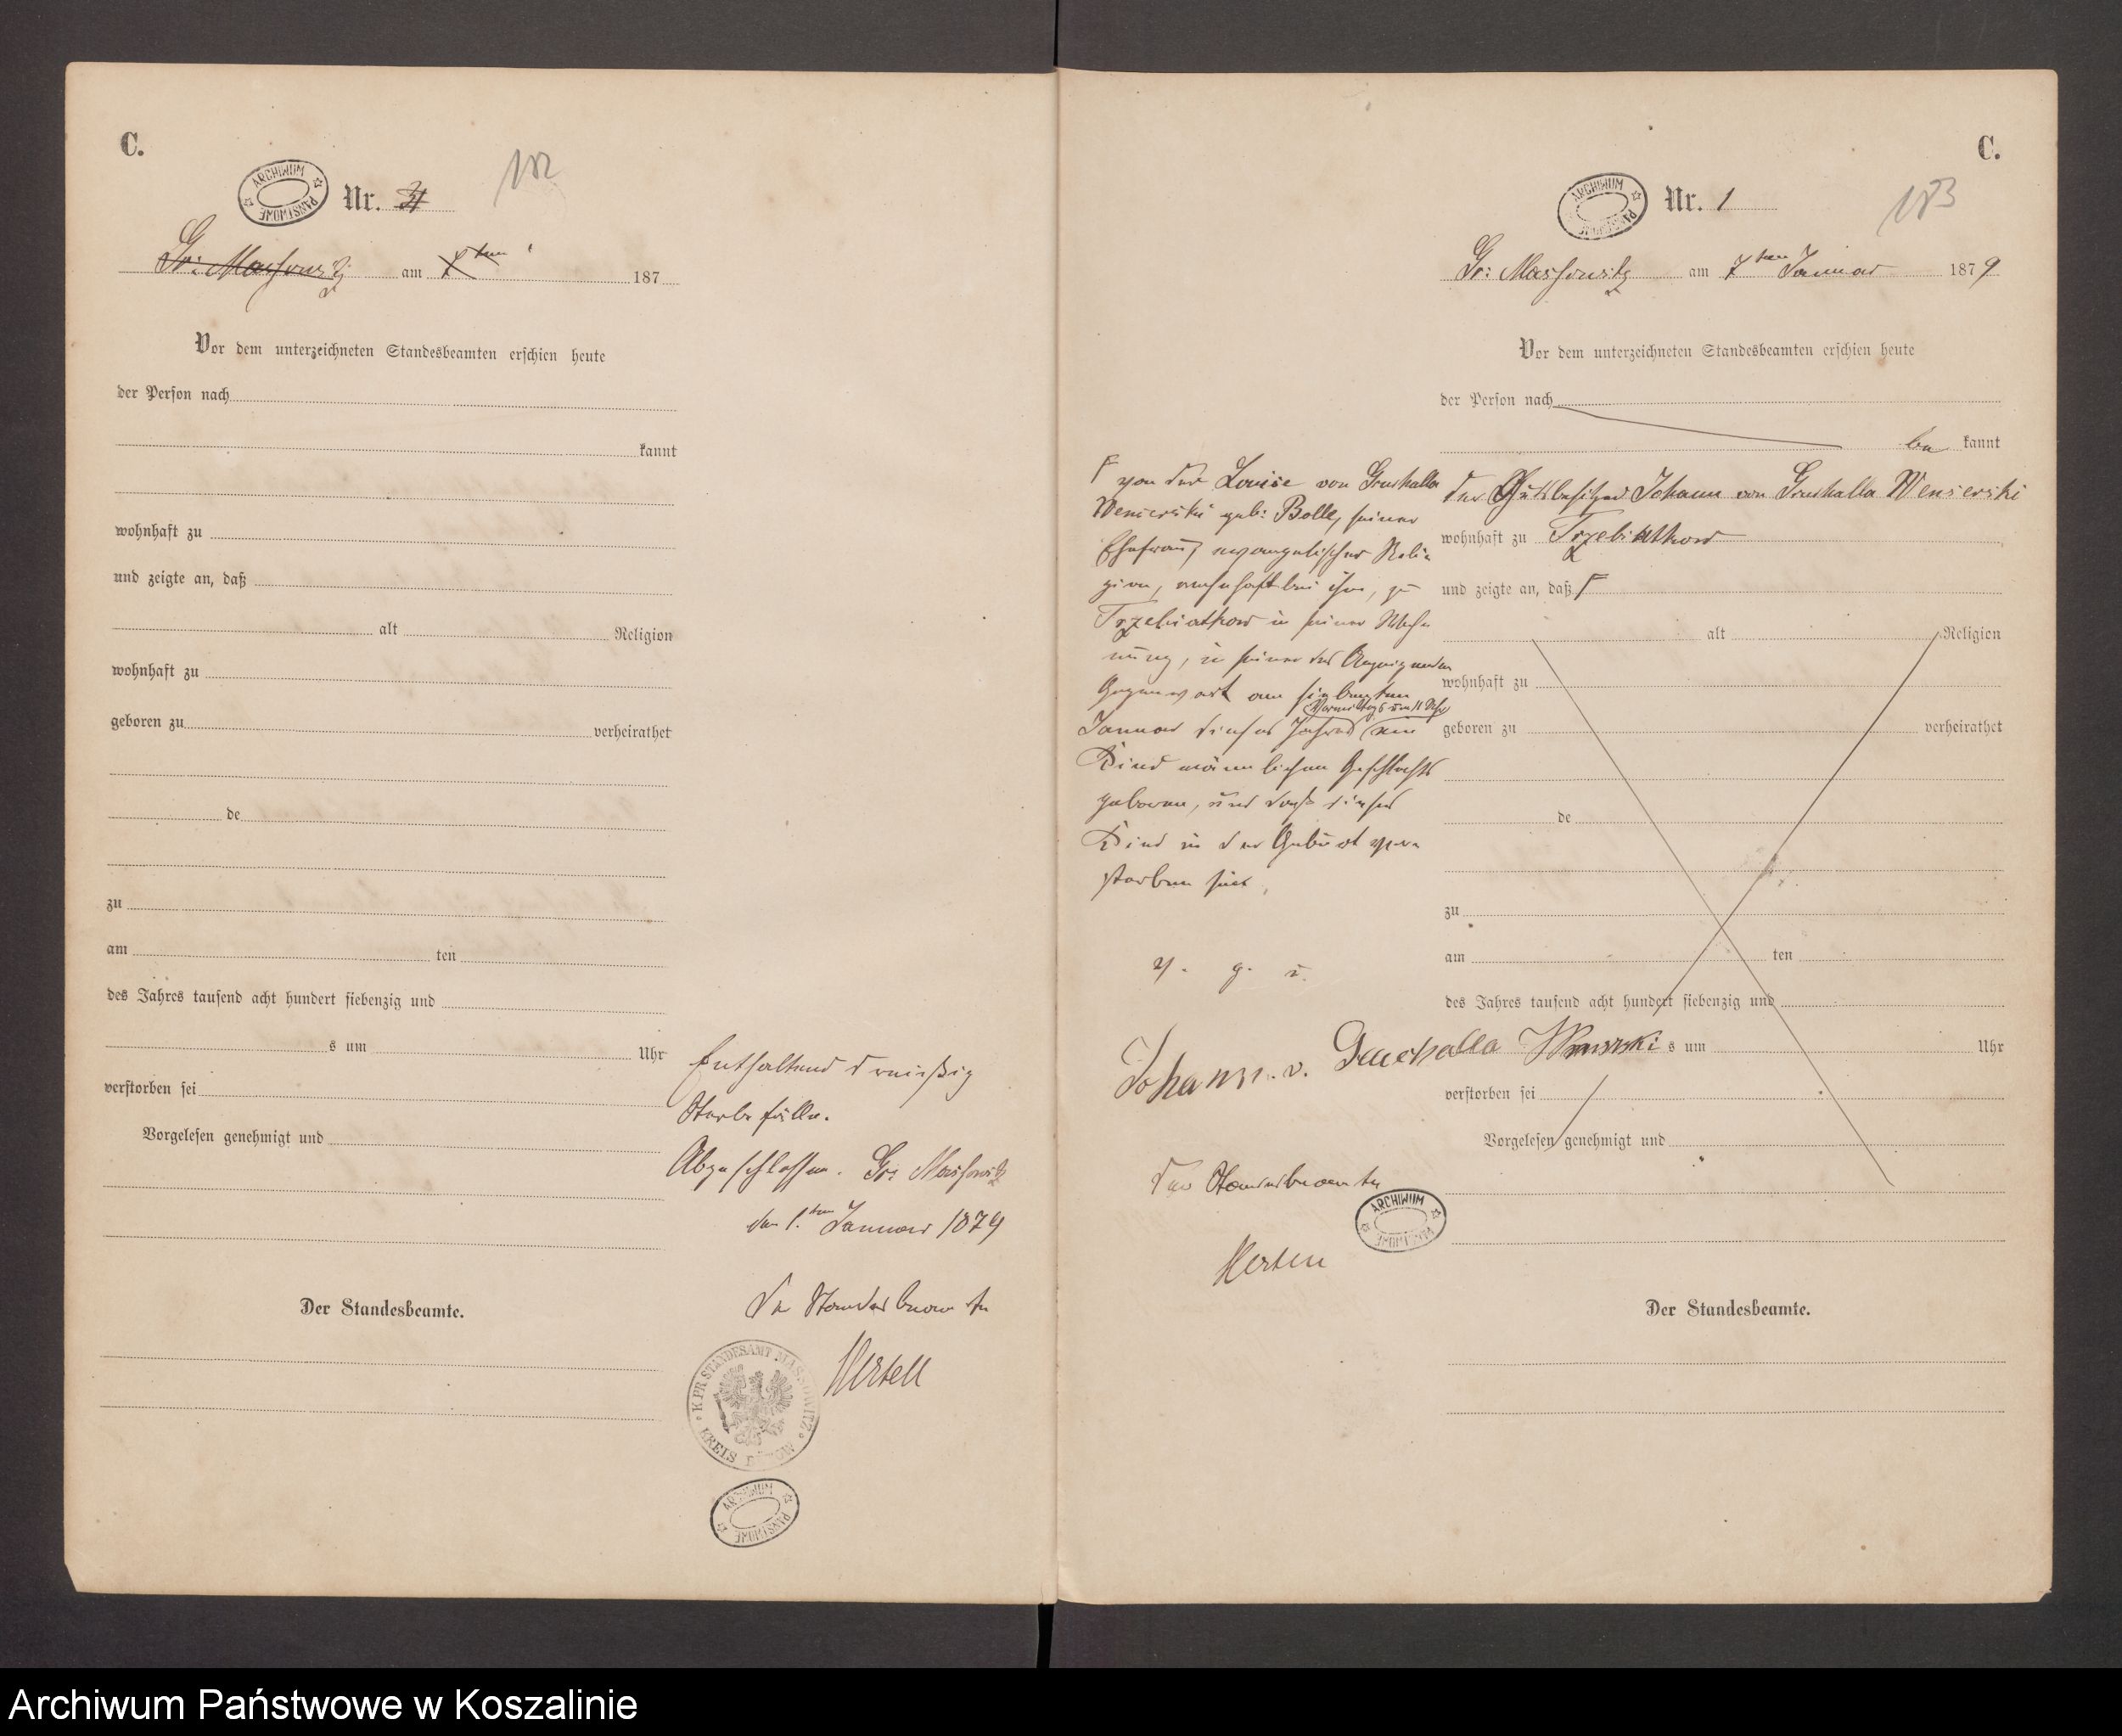 C.
ARCHIWUM PAŃSTWOWE
Nr. 31
182
Gr: Massowitz am 7ten 187
Vor dem unterzeichneten Standesbeamten erschien heute
der Person nach
kannt
wohnhaft zu
und zeigte an, daß
alt Religion
wohnhaft zu
geboren zu verheirathet
de
zu
am ten
des Jahres tausend acht hundert siebenzig und
s um Uhr
verstorben sei
Vorgelesen genehmigt und
Der Standesbeamte.
Enthaltend dreißig
Sterbefälle.
Abgeschlossen. Gr: Massowitz
den 1.ten Januar 1879
Der Standesbeamte
Mertell
K. PR. STANDESAMT MASSOWITZ
KREIS BÜTOW
ARCHIWUM PAŃSTWOWE
C.
ARCHIWUM PAŃSTWOWE
Nr. 1
183
Gr: Massowitz am 7ten Januar 1879
Vor dem unterzeichneten Standesbeamten erschien heute
der Person nach
be kannt
der Gutsbesitzer Johann von Gruchalla Wensierski
wohnhaft zu Trzebiatkow
und zeigte an, daß
alt Religion
wohnhaft zu
geboren zu verheirathet
de
zu
am ten
des Jahres tausend acht hundert siebenzig und
s um Uhr
verstorben sei
Vorgelesen genehmigt und
Der Standesbeamte.
von der Louise von Gruchalla
Wensierski geb: Bolle, seiner
Ehefrau, evangelischer Reli
gion, wohnhaft bei ihm, zu
Trzebiatkow in seiner Woh
nung, in seiner des Anzeigenden
Gegenwart am siebenten
Vormittags um 11 Uhr
Januar dieses Jahres ein
Kind männlichen Geschlechts
geboren, und daß dieses
Kind in der Geburt ver
storben sei.
v. g. u.
Johann v. Gruchalla Wensierski
Der Standesbeamte
ARCHIWUM PAŃSTWOWE
Archiwum Państwowe w Koszalinie